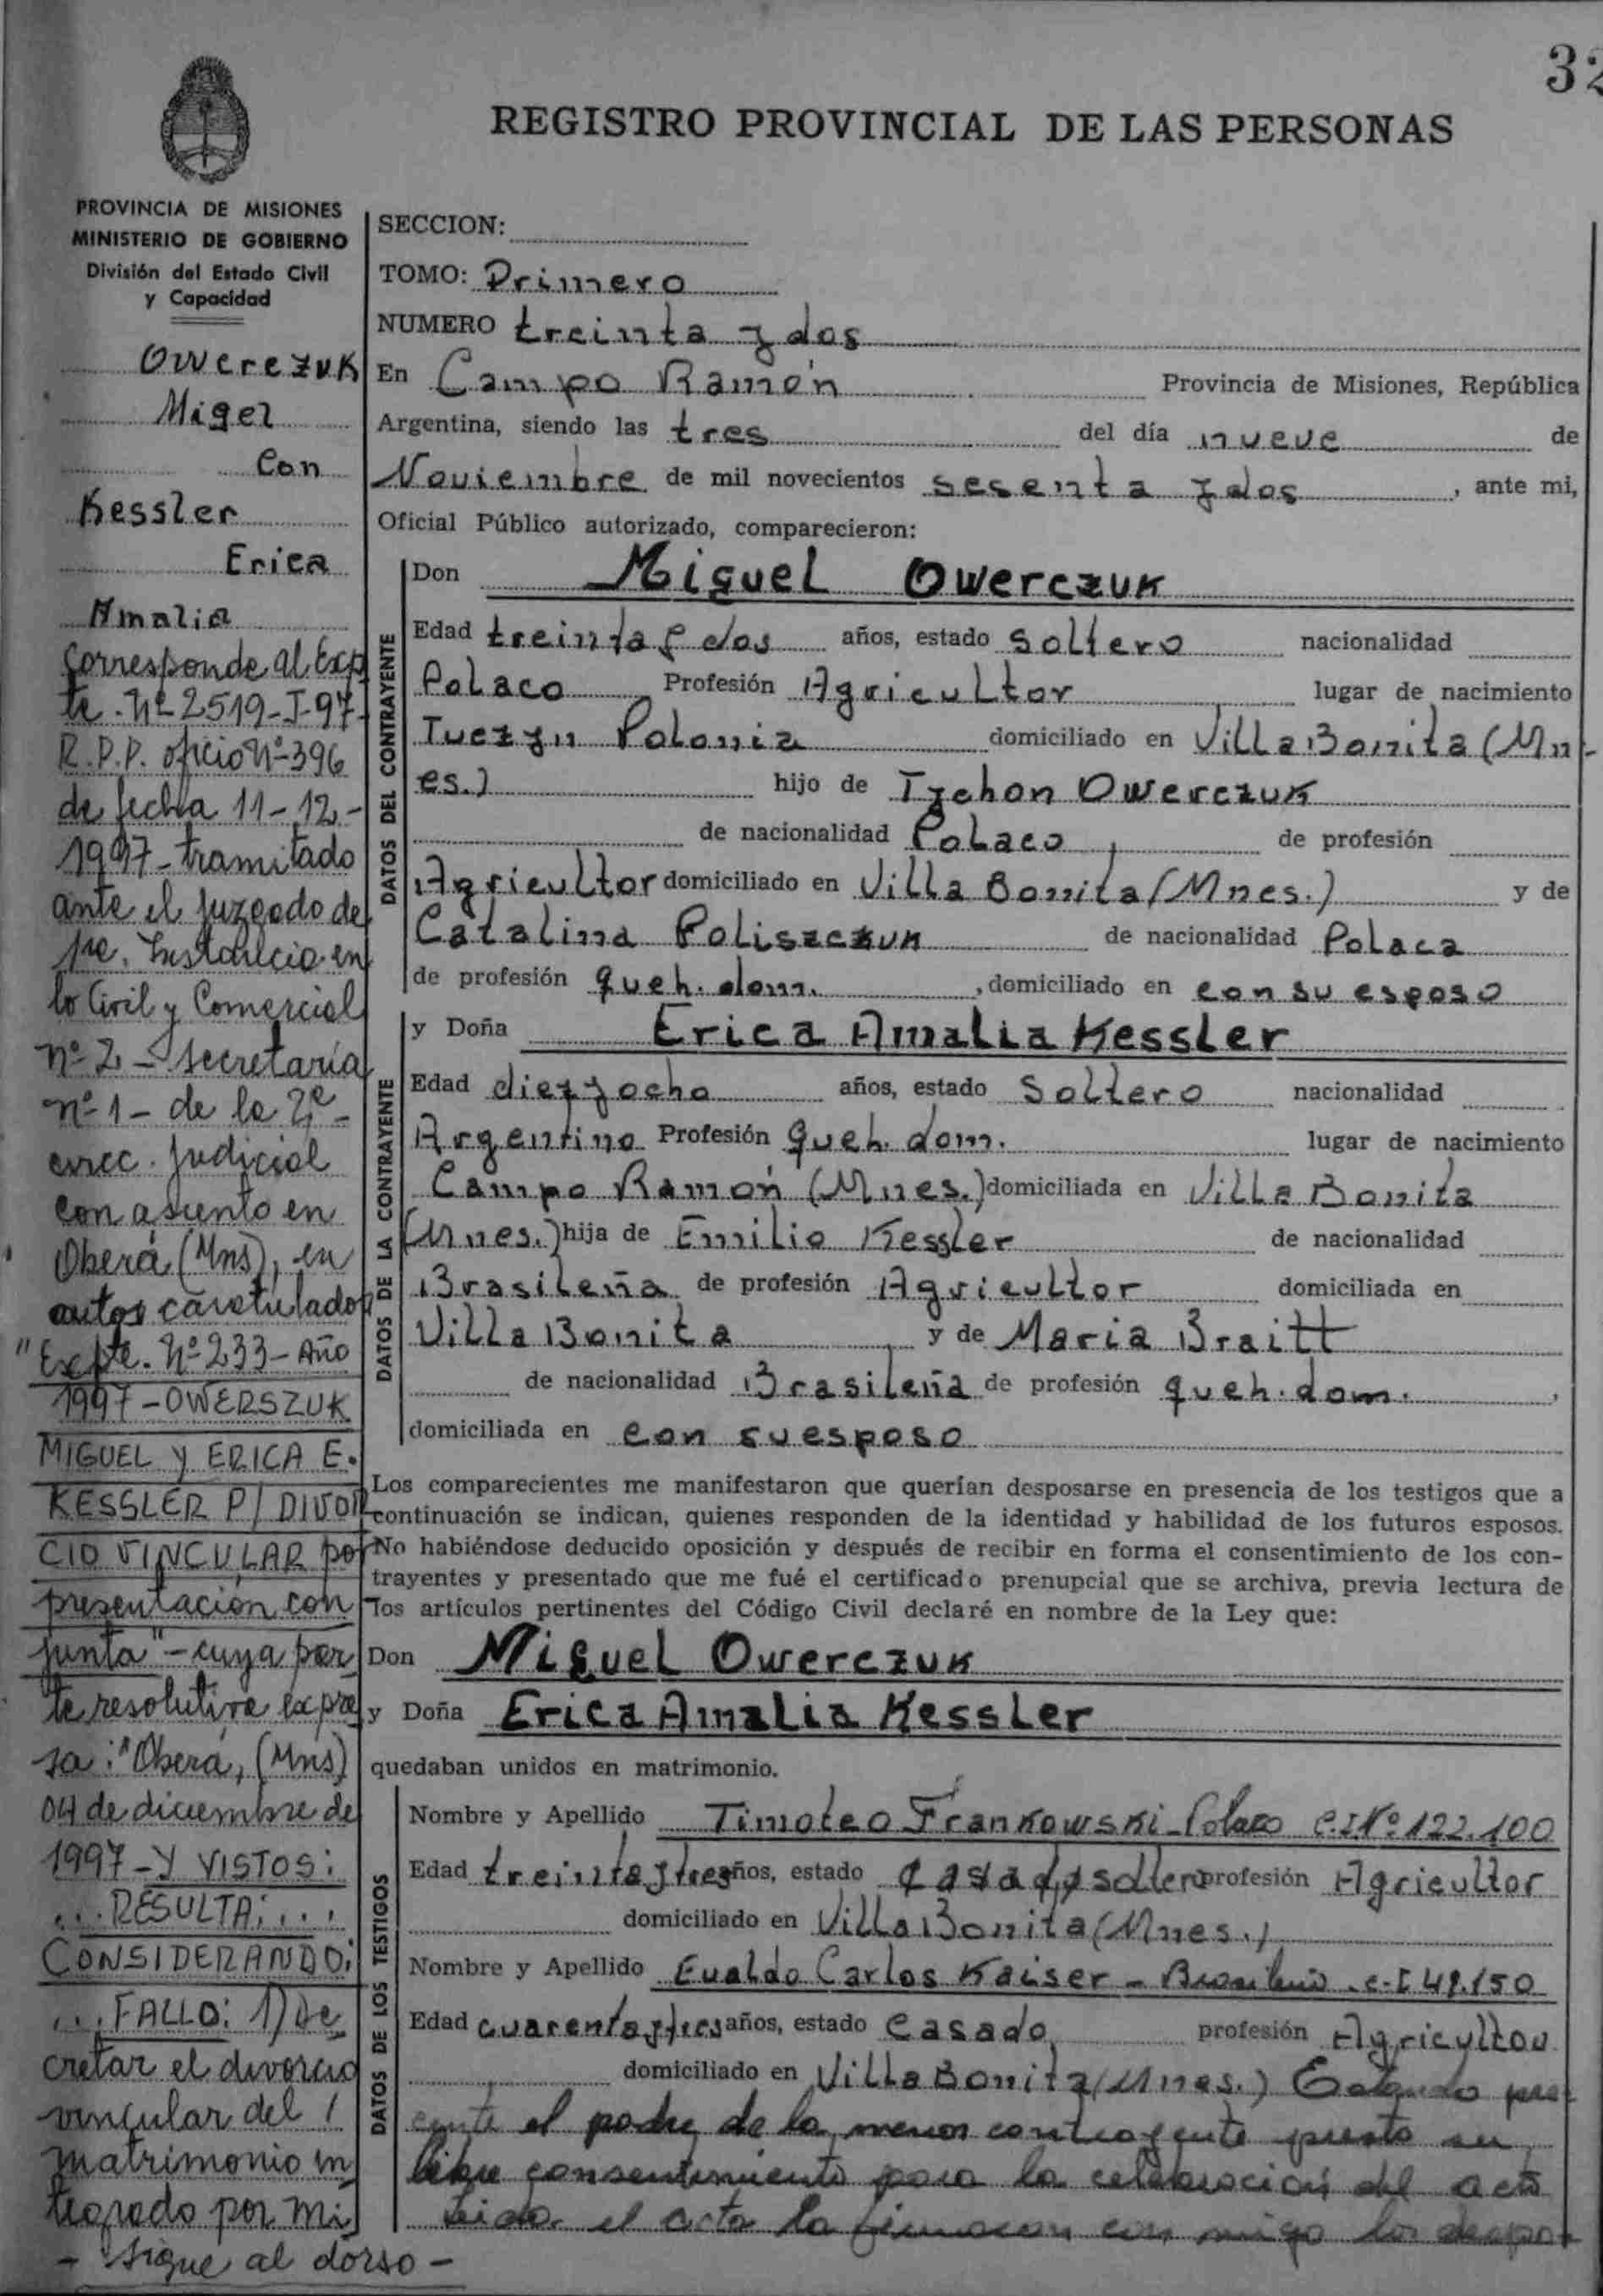 32
REGISTRO PROVINCIAL DE LAS PERSONAS
PROVINCIA DE MISIONES
MINISTERIO DE GOBIERNO
División del Estado Civil
y Capacidad
Owerezuk
Migel
Con
Kessler
Erica
Amalia
Corresponde al Exp
te. Nº 2519-I-97-
R.P.P. oficio Nº 396
de fecha 11-12-
1997-tramitado
ante el juzgado de
1ra. Instancia en
lo Civil y Comercial
nº 2 - Secretaría
nº 1 - de la 2ª
circ. Judicial
con asiento en
Oberá (Mns), en
autos caratulados
"Expte. Nº 233 - Año
1997 - OWERSZUK
MIGUEL Y ERICA E.
KESSLER P/ DIVOR
CIO VINCULAR por
presentación con
junta" - cuya par
te resolutiva expre
sa: "Oberá, (Mns)
04 de diciembre de
1997 - Y VISTOS:
... RESULTA: ...
CONSIDERANDO:
... FALLO: 1) De
cretar el divorcio
vincular del /
matrimonio in
tegrado por Mi
- Sigue al dorso -
SECCION:
TOMO: Primero
NUMERO treinta y dos
En Campo Ramón Provincia de Misiones, República
Argentina, siendo las tres del día nueve de
Noviembre de mil novecientos sesenta y dos, ante mi,
Oficial Público autorizado, comparecieron:
DATOS DEL CONTRAYENTE
Don Miguel Owerczuk
Edad treinta y dos años, estado soltero nacionalidad
Polaco Profesión Agricultor lugar de nacimiento
Tuczyn Polonia domiciliado en Villa Bonita (Mn-
es.) hijo de Tychon Owerczuk
de nacionalidad Polaco, de profesión
Agricultor domiciliado en Villa Bonita (Mnes.) y de
Catalina Poliszczuk de nacionalidad Polaca
de profesión queh. dom., domiciliado en con su esposo
DATOS DE LA CONTRAYENTE
y Doña Erica Amalia Kessler
Edad diez y ocho años, estado Soltero nacionalidad
Argentino Profesión queh. dom. lugar de nacimiento
Campo Ramón (Mnes.) domiciliada en Villa Bonita
(Mnes.) hija de Emilio Kessler de nacionalidad
Brasileña de profesión Agricultor domiciliada en
Villa Bonita y de Maria Braitt
de nacionalidad Brasileña de profesión queh. dom.,
domiciliada en con su esposo
Los comparecientes me manifestaron que querían desposarse en presencia de los testigos que a
continuación se indican, quienes responden de la identidad y habilidad de los futuros esposos.
No habiéndose deducido oposición y después de recibir en forma el consentimiento de los con-
trayentes y presentado que me fué el certificado prenupcial que se archiva, previa lectura de
los artículos pertinentes del Código Civil declaré en nombre de la Ley que:
Don Miguel Owerczuk
y Doña Erica Amalia Kessler
quedaban unidos en matrimonio.
DATOS DE LOS TESTIGOS
Nombre y Apellido Timoteo Frankowski - Polaco C.I. Nº 122.100
Edad treinta y tres años, estado casado soltero profesión Agricultor
domiciliado en Villa Bonita (Mnes.)
Nombre y Apellido Evaldo Carlos Kaiser - Brasileño. C.I 49.150
Edad cuarenta y tres años, estado casado profesión Agricultor
domiciliado en Villa Bonita (Mnes.) Estando pre
sente el padre de la menor contrayente presta su
libre consentimiento para la celebración del acto
Leida el acta la firmaron con migo los despo-